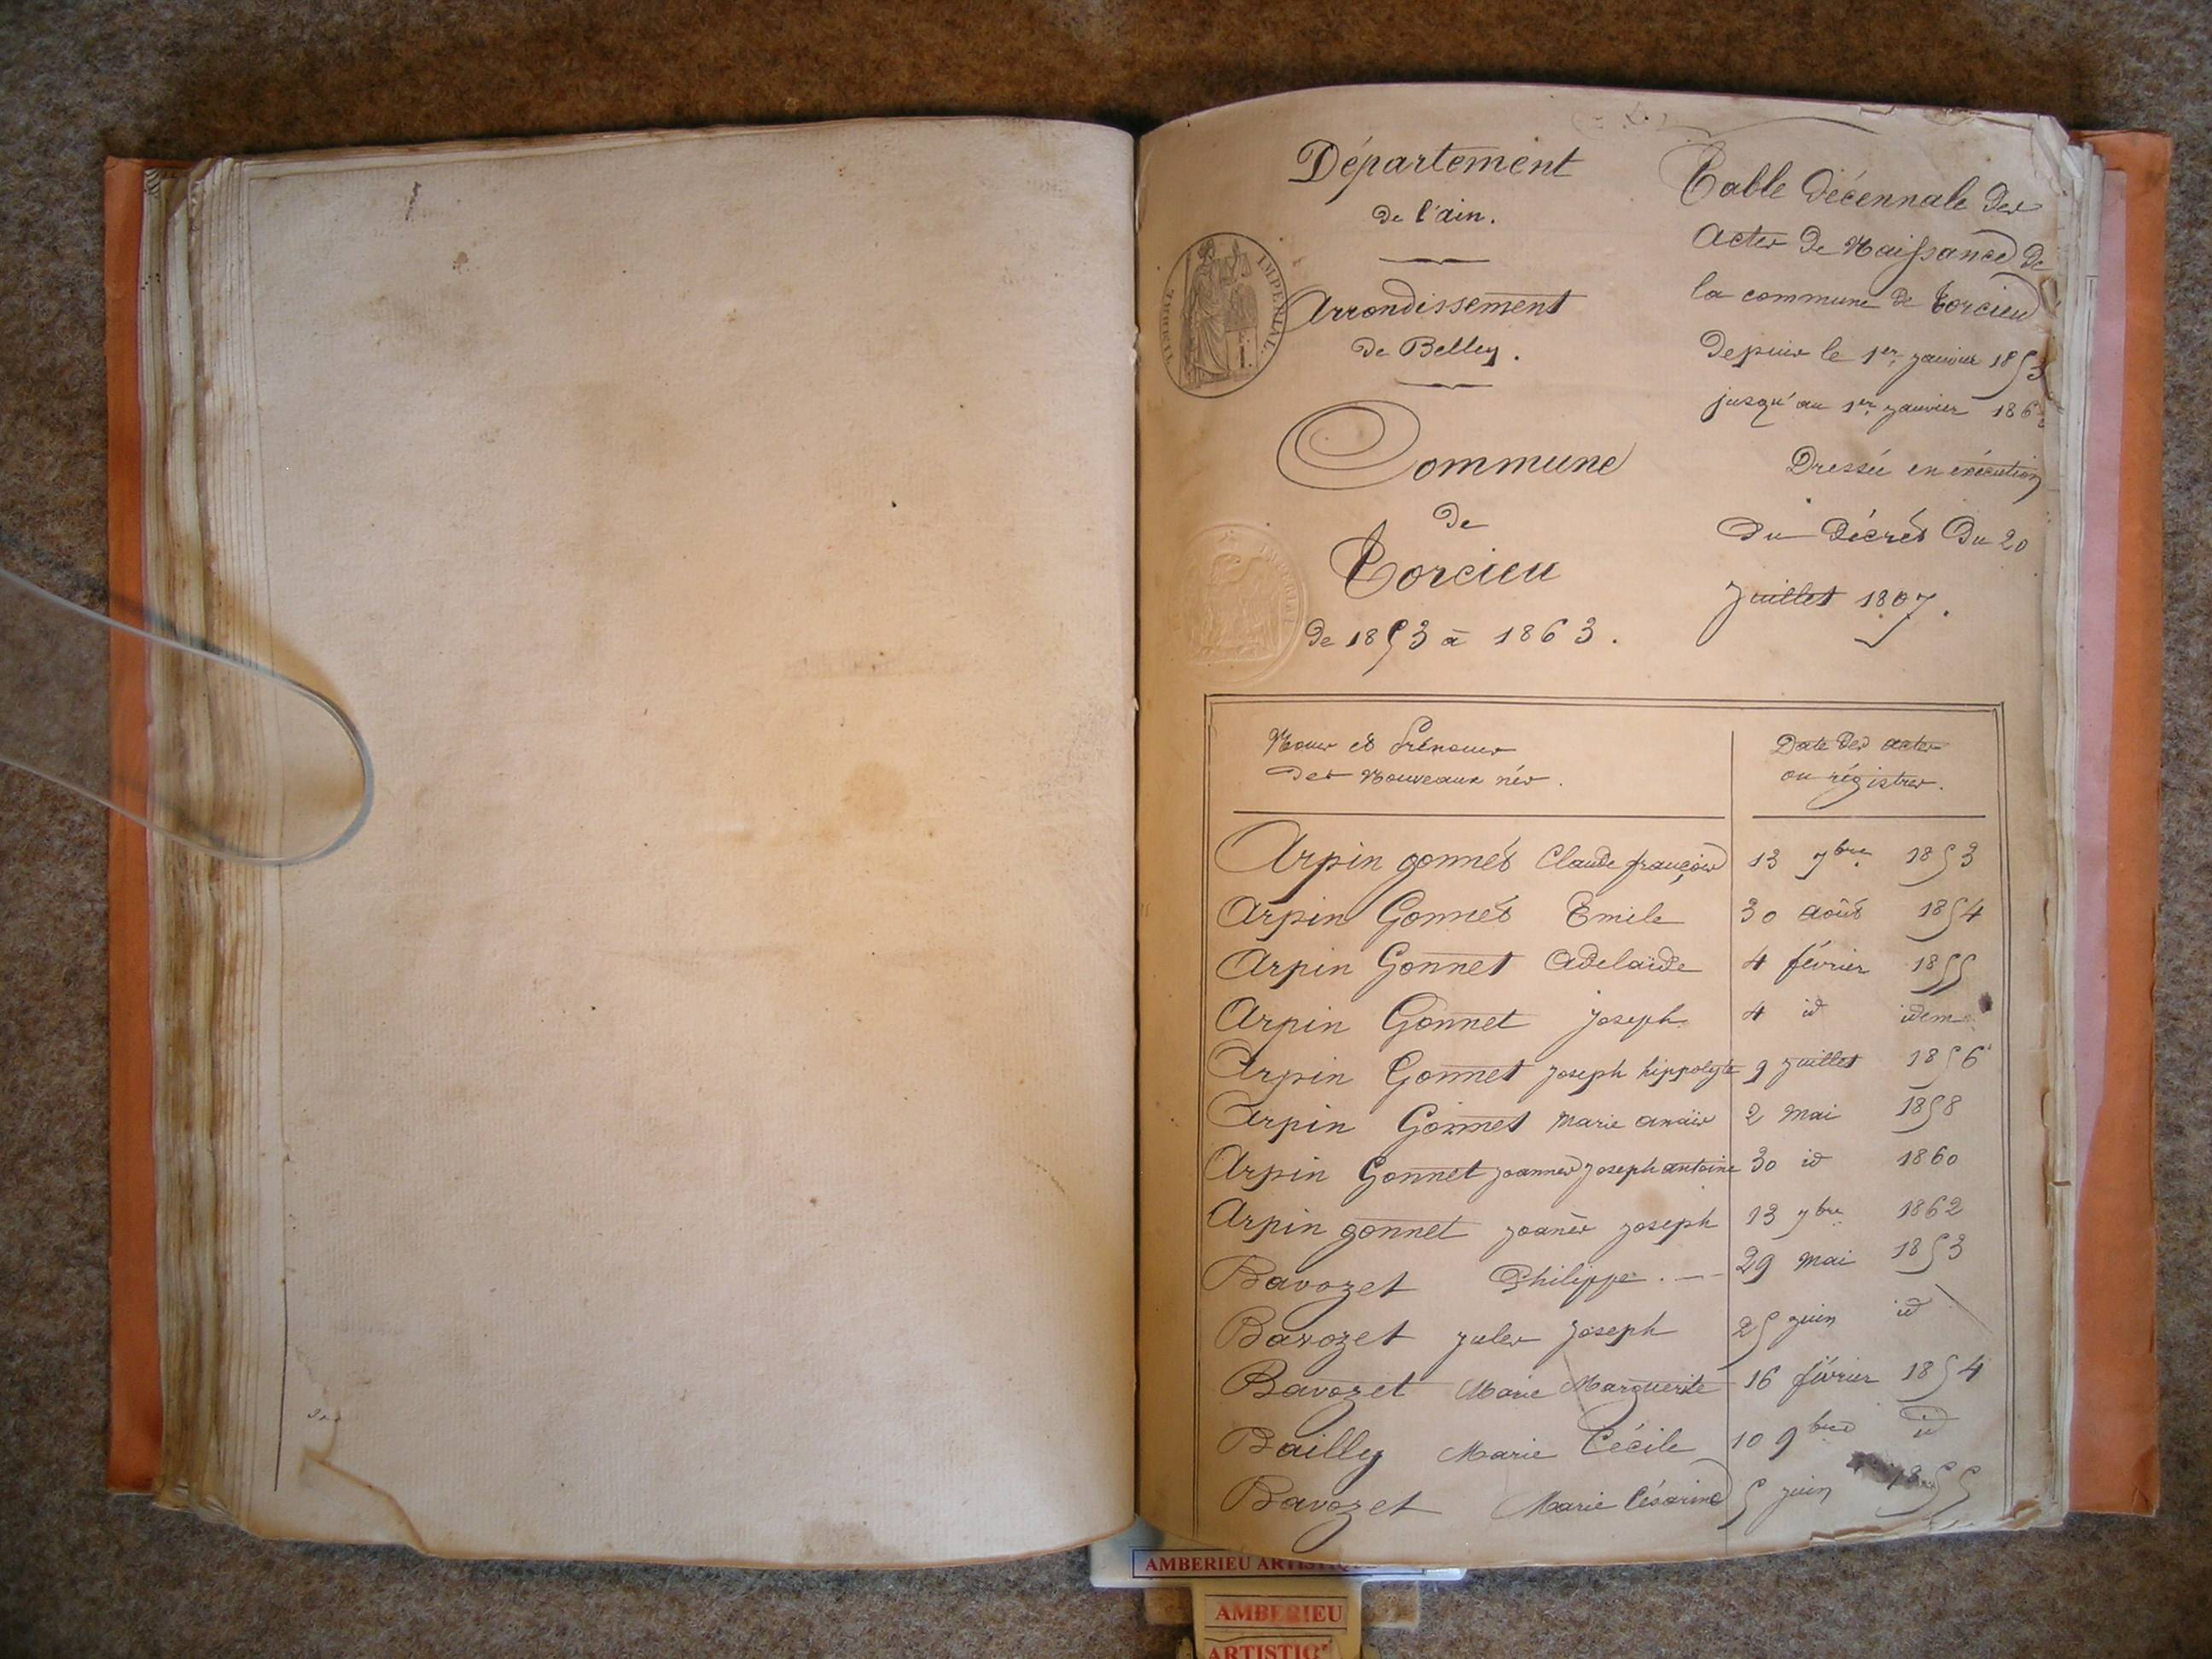 Département
de l'ain.
Arrondissement
de Belley.
Commune
de
Torcieu
de 1853 à 1863.
TIMBRE IMPERIAL.
Table décennale des
actes de Naissance de
la commune de Torcieu
depuis le 1er janvier 1853
jusqu'au 1er janvier 186
Dressée en exécution
du décret du 20
juillet 1807.
Noms et Prénoms
des Nouveaux nés.
Date des actes
ou régistres.
Arpin gonnet Claude françois 13 7bre 1853
Arpin Gonnet Emile 30 août 1854
Arpin Gonnet Adelaïde 4 février 1855
Arpin Gonnet joseph 4 id idem
Arpin Gonnet joseph hippolyte 9 juillet 1856
Arpin Gonnet Marie anaïs 2 mai 1858
Arpin Gonnet joannes joseph antoine 30 id 1860
Arpin gonnet joanès joseph 13 7bre 1862
Bavozet Philippe. 29 mai 1853
Bavozet jules joseph 25 juin id
Bavozet Marie Marguerite 16 février 1854
Bailly Marie Cécile 10 9bre id
Bavozet Marie Césarine 5 juin 1855
AMBERIEU ARTISTIQUE
AMBERIEU
ARTISTIQ